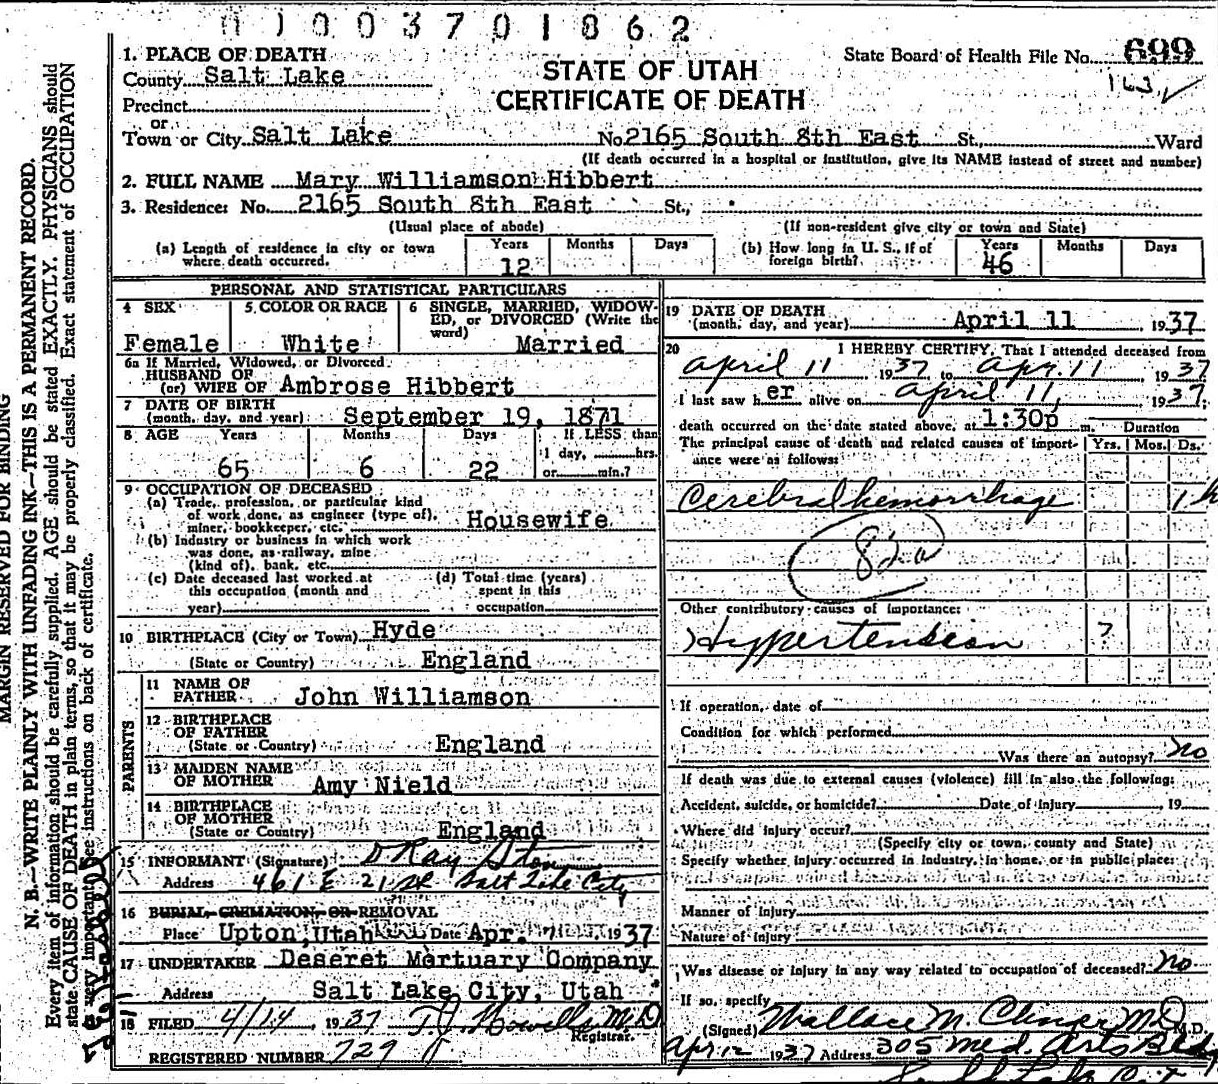 01003701862
State Board of Health File No. 699
163
STATE OF UTAH
CERTIFICATE OF DEATH
1. PLACE OF DEATH
County Salt Lake
Precinct
or
Town or City Salt Lake No. 2165 South 8th East St., Ward
(If death occurred in a hospital or institution, give its NAME instead of street and number)
2. FULL NAME Mary Williamson Hibbert
3. Residence: No. 2165 South 8th East St.,
(Usual place of abode) (If non-resident give city or town and State)
(a) Length of residence in city or town where death occurred. Years 12 Months Days
(b) How long in U. S., if of foreign birth? Years 46 Months Days
PERSONAL AND STATISTICAL PARTICULARS
4 SEX Female
5. COLOR OR RACE White
6 SINGLE, MARRIED, WIDOWED, or DIVORCED (Write the word) Married
6a If Married, Widowed, or Divorced
HUSBAND OF
(or) WIFE OF Ambrose Hibbert
7 DATE OF BIRTH
(month, day, and year) September 19, 1871
8 AGE Years 65 Months 6 Days 22 If LESS than 1 day, hrs. or min.?
9 OCCUPATION OF DECEASED
(a) Trade, profession, or particular kind
of work done, as engineer (type of),
miner, bookkeeper, etc. Housewife
(b) Industry or business in which work
was done, as railway, mine
(kind of), bank, etc.
(c) Date deceased last worked at
this occupation (month and
year)
(d) Total time (years)
spent in this
occupation
10 BIRTHPLACE (City or Town) Hyde
(State or Country) England
PARENTS
11 NAME OF
FATHER John Williamson
12 BIRTHPLACE
OF FATHER
(State or Country) England
13 MAIDEN NAME
OF MOTHER Amy Nield
14 BIRTHPLACE
OF MOTHER
(State or Country) England
15 INFORMANT (Signature) D Ray
Address 461 E 21 So Salt Lake City
16 BURIAL, CREMATION, OR REMOVAL
Place Upton, Utah Date Apr. 1937
17 UNDERTAKER Deseret Mortuary Company
Address Salt Lake City, Utah
18 FILED 4/14 1937 T.J. Howells M.D
Registrar.
REGISTERED NUMBER 729
19 DATE OF DEATH
(month, day, and year) April 11, 1937
20 I HEREBY CERTIFY, That I attended deceased from
April 11 1937 to Apr. 11 1937
I last saw her alive on April 11, 1937
death occurred on the date stated above, at 1:30p m. Duration
The principal cause of death and related causes of importance were as follows: Yrs. Mos. Ds.
Cerebral hemorrhage 1 h
82a
Other contributory causes of importance:
Hyppertension ?
If operation, date of
Condition for which performed
Was there an autopsy? no
If death was due to external causes (violence) fill in also the following:
Accident, suicide, or homicide? Date of injury , 19
Where did injury occur?
(Specify city or town, county and State)
Specify whether injury occurred in industry, in home, or in public place:
Manner of injury
Nature of injury
Was disease or injury in any way related to occupation of deceased? no
If so, specify
(Signed) Wallace M. MD M.D.
Apr 12 1937 Address 305 Med. Arts Bldg
MARGIN RESERVED FOR BINDING
N. B.—WRITE PLAINLY WITH UNFADING INK—THIS IS A PERMANENT RECORD.
Every item of information should be carefully supplied. AGE should be stated EXACTLY. PHYSICIANS should
state CAUSE OF DEATH in plain terms, so that it may be properly classified. Exact statement of OCCUPATION
is very important. See instructions on back of certificate.